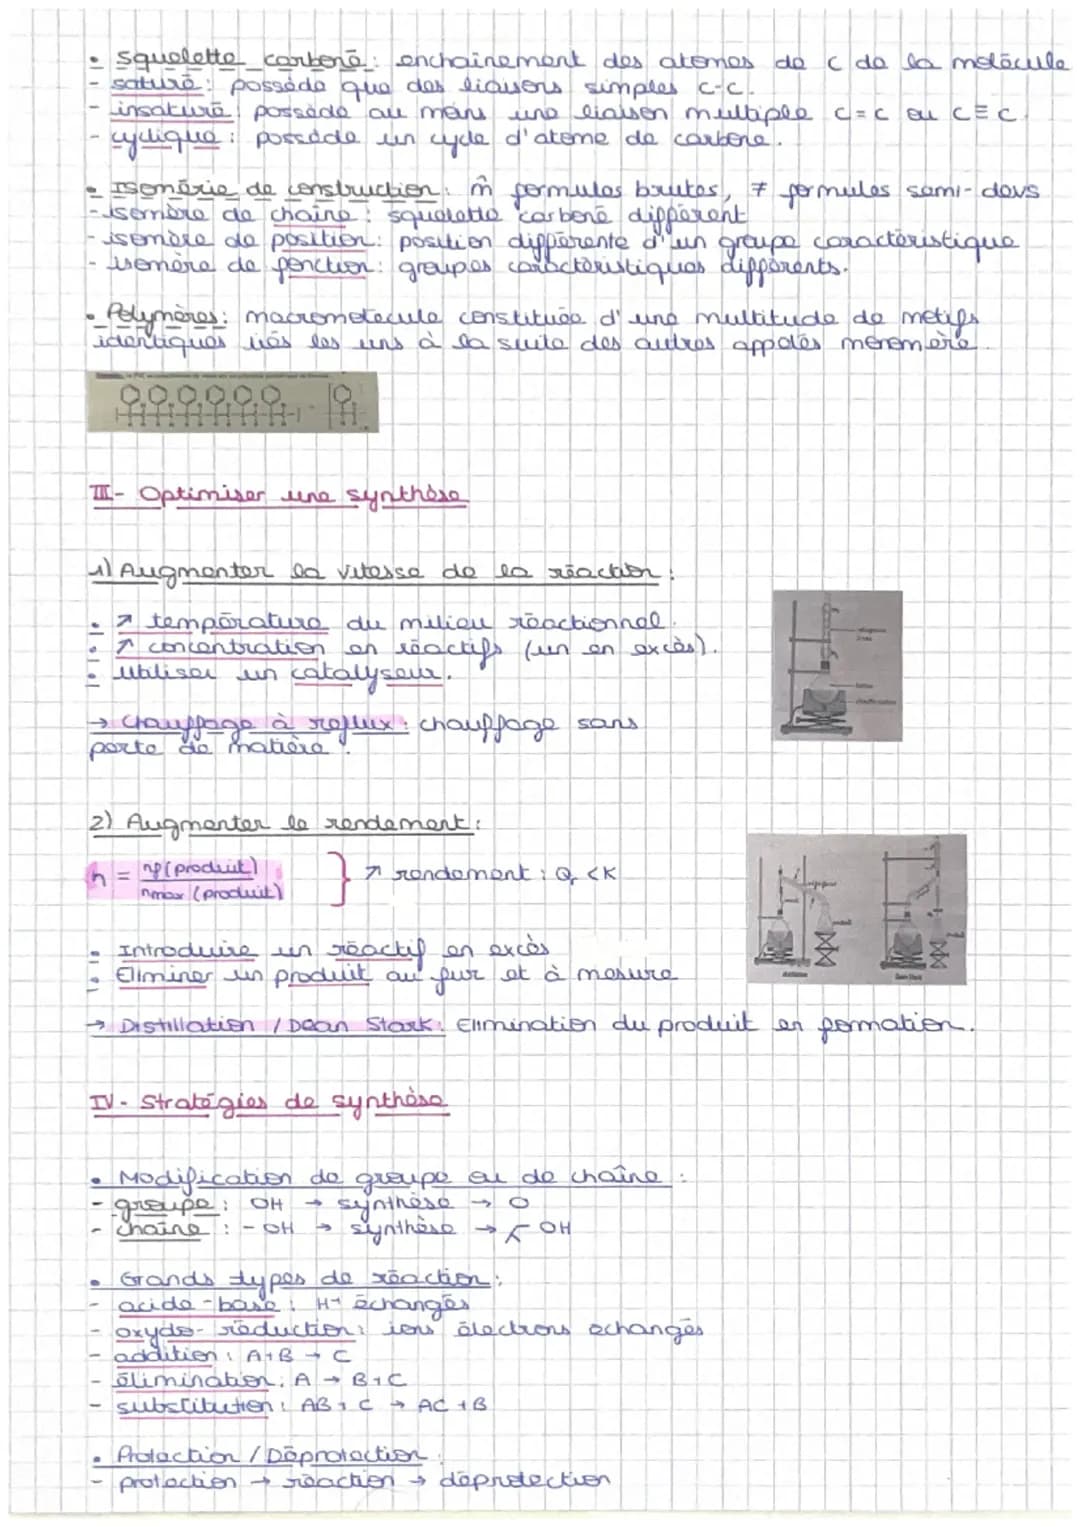 • Squelette carboné : enchaînement des atomes de C de la molécule
- saturé : possède que des liaisons simples C-C.
- insaturé : possède au moins une liaison multiple C=C ou C≡C.
- cyclique : possède un cycle d'atome de carbone.
• Isomérie de constitution : m̂ formules brutes, ≠ formules semi-devs
- isomère de chaîne : squelette carboné différent
- isomère de position : position différente d'un groupe caractéristique
- isomère de fonction : groupes caractéristiques différents.
• Polymères : macromolécule constituée d'une multitude de motifs
identiques liés les uns à la suite des autres appelés monomère.
III - Optimiser une synthèse
1) Augmenter la vitesse de la réaction :
• ↗ température du milieu réactionnel.
• ↗ concentration en réactifs (un en excès).
• utiliser un catalyseur.
→ Chauffage à reflux : chauffage sans
perte de matière.
2) Augmenter le rendement :
η = nf(produit) / nmax(produit) } ↗ rendement : Qr < K
• Introduire un réactif en excès
• Eliminer un produit au fur et à mesure
→ Distillation / Dean Stark : Elimination du produit en formation.
IV - Stratégies de synthèse
• Modification de groupe ou de chaîne :
- groupe : OH → synthèse → O
- chaîne : - OH → synthèse → OH
• Grands types de réaction :
- acide-base : H+ échangés
- oxydo-réduction : ions électrons échangés
- addition : A+B → C
- élimination : A → B+C
- substitution : AB + C → AC + B
• Protection / Déprotection :
- protection → réaction → déprotection